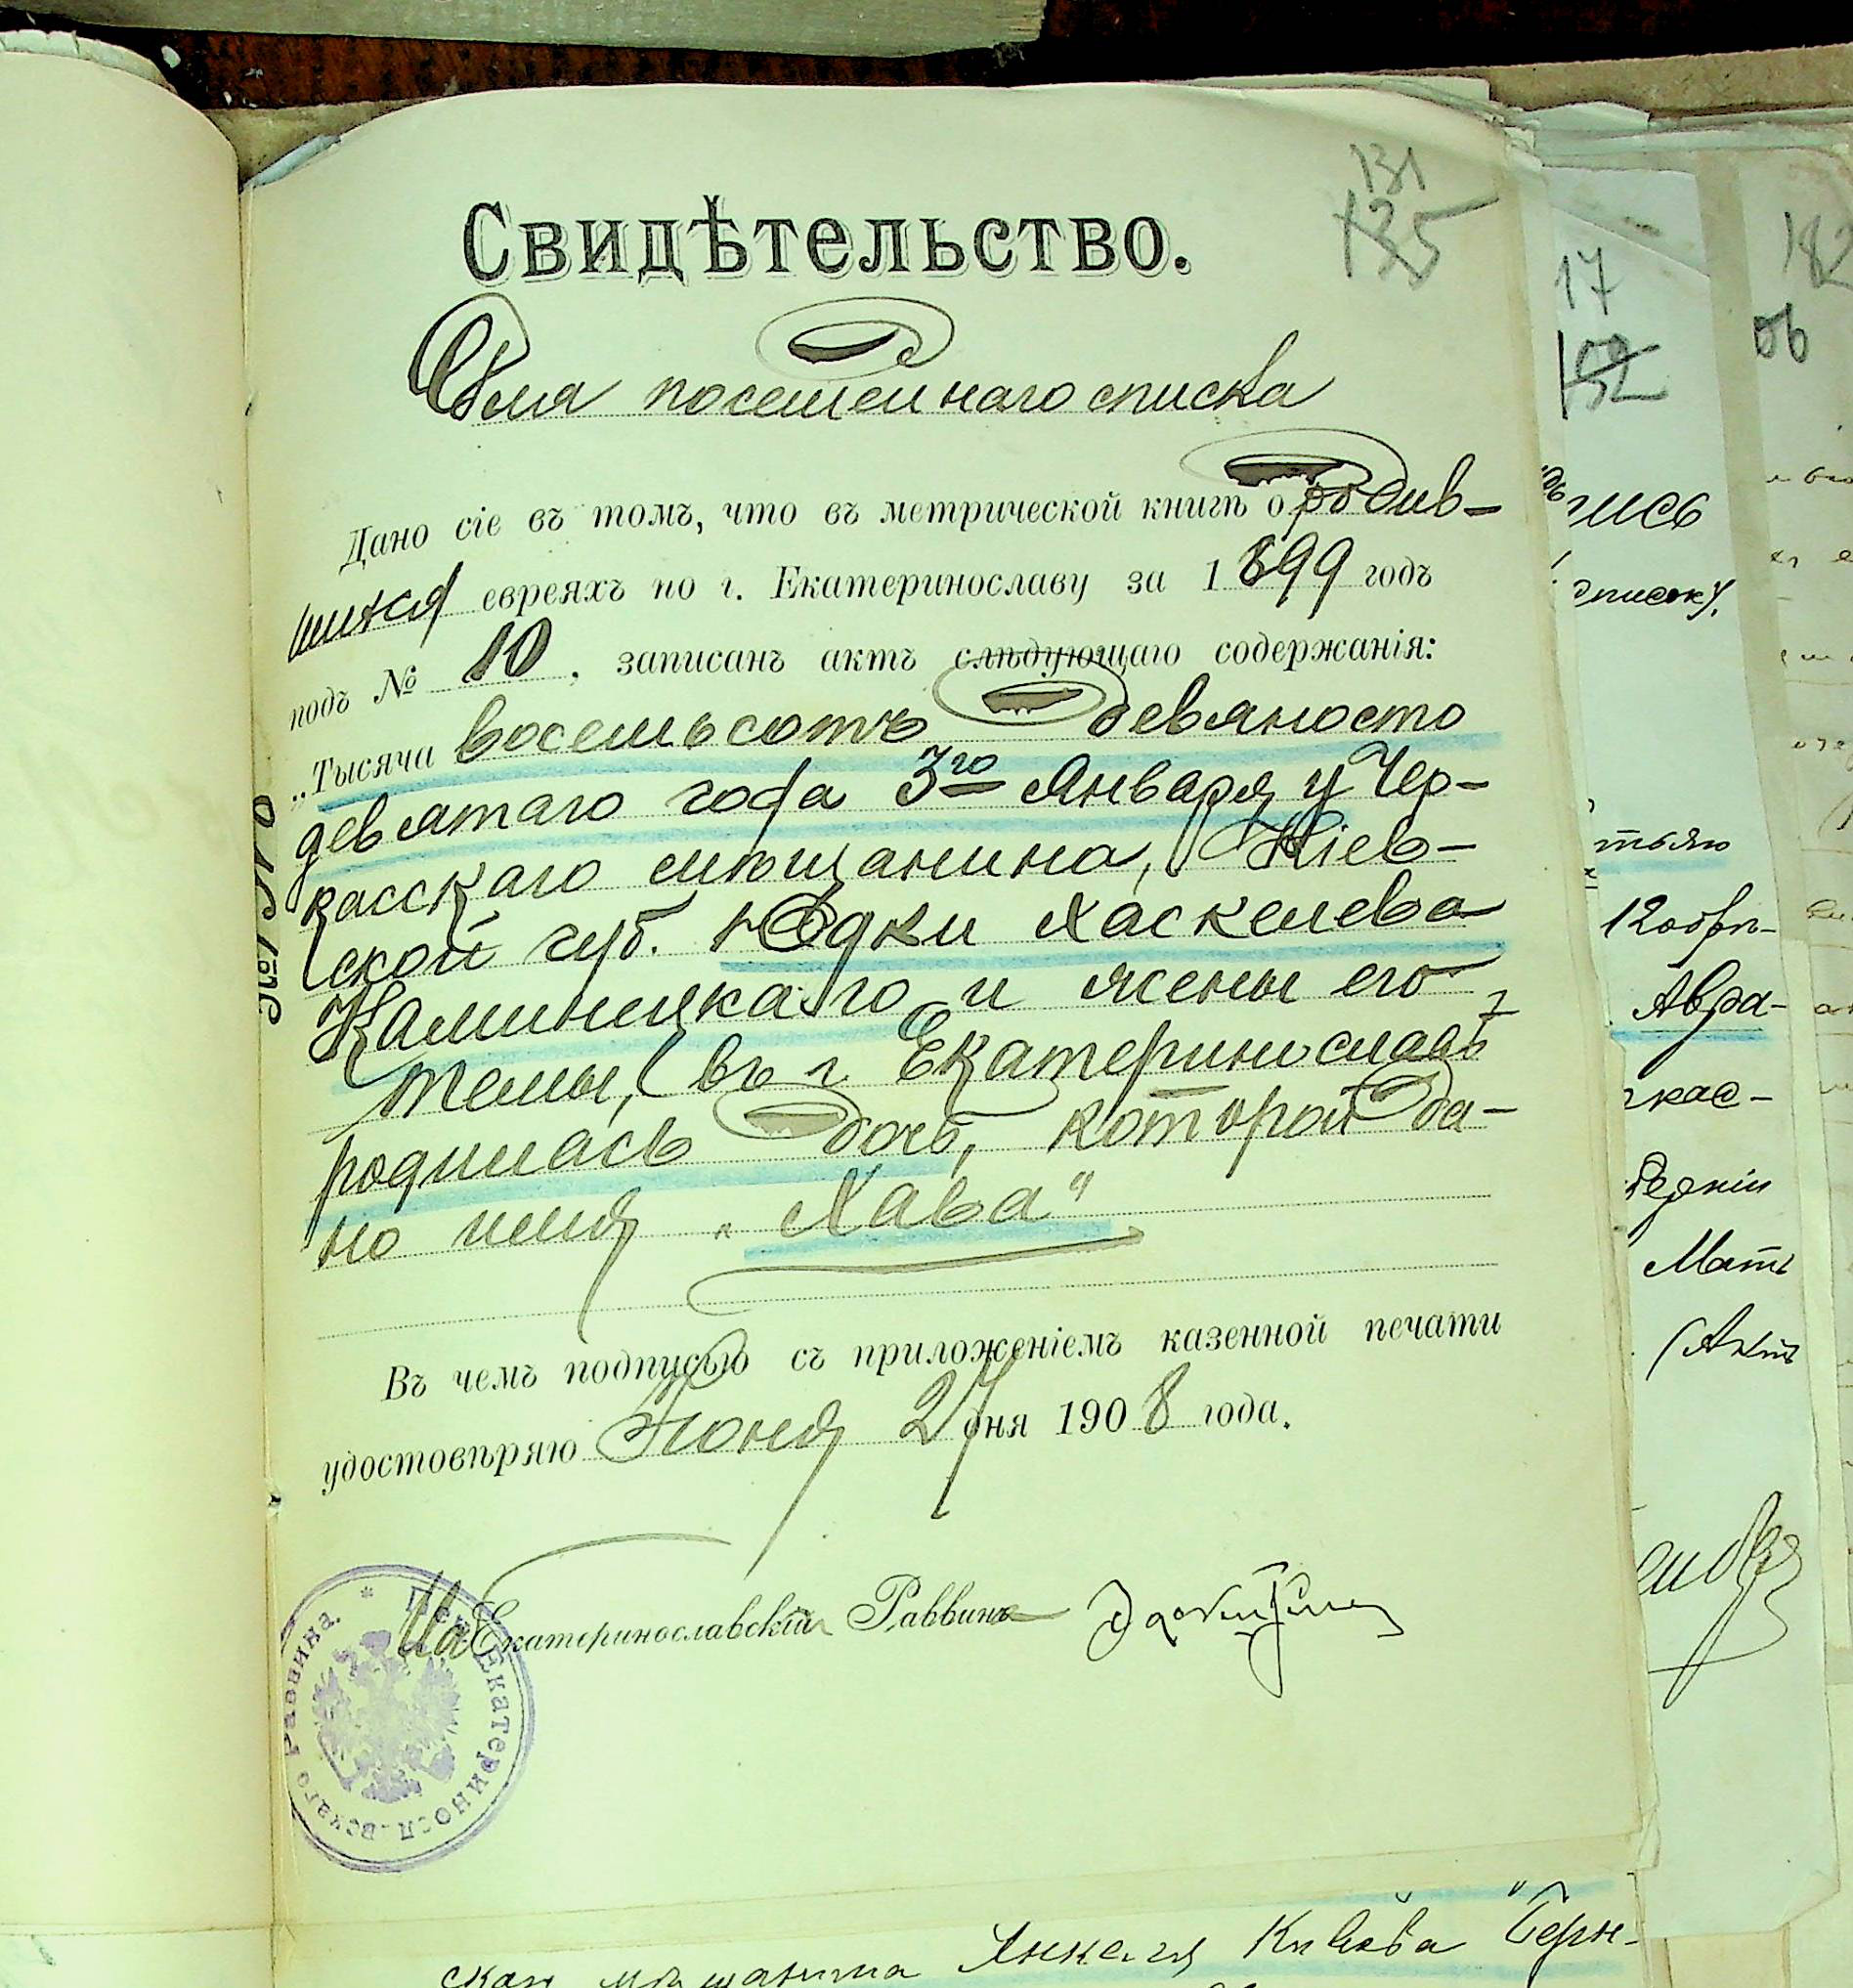 131
135
Свидѣтельство.
Для посемейнаго списка
Дано сіе въ томъ, что въ метрической книгѣ о родив-
шихся евреяхъ по г. Екатеринославу за 1899 годъ
подъ № 10, записанъ актъ слѣдующаго содержанія:
„Тысяча восемьсотъ девяносто
девятаго года 3го Января у Чер-
касскаго мѣщанина, Кіев-
ской губ. Юдки Хаскелева
Каминскаго и жены его
Темы, въ г Екатеринославѣ
родилась дочь, которой да-
но имя „Хава"
Въ чемъ подписью съ приложеніемъ казенной печати
удостовѣряю Іюня 27 дня 1908 года.
Екатеринославскій Раввинъ
Екатеринославскаго Раввина
17
132
182
писку.
тьяю
Авра-
ркас-
Мать
(Актъ
Берк-